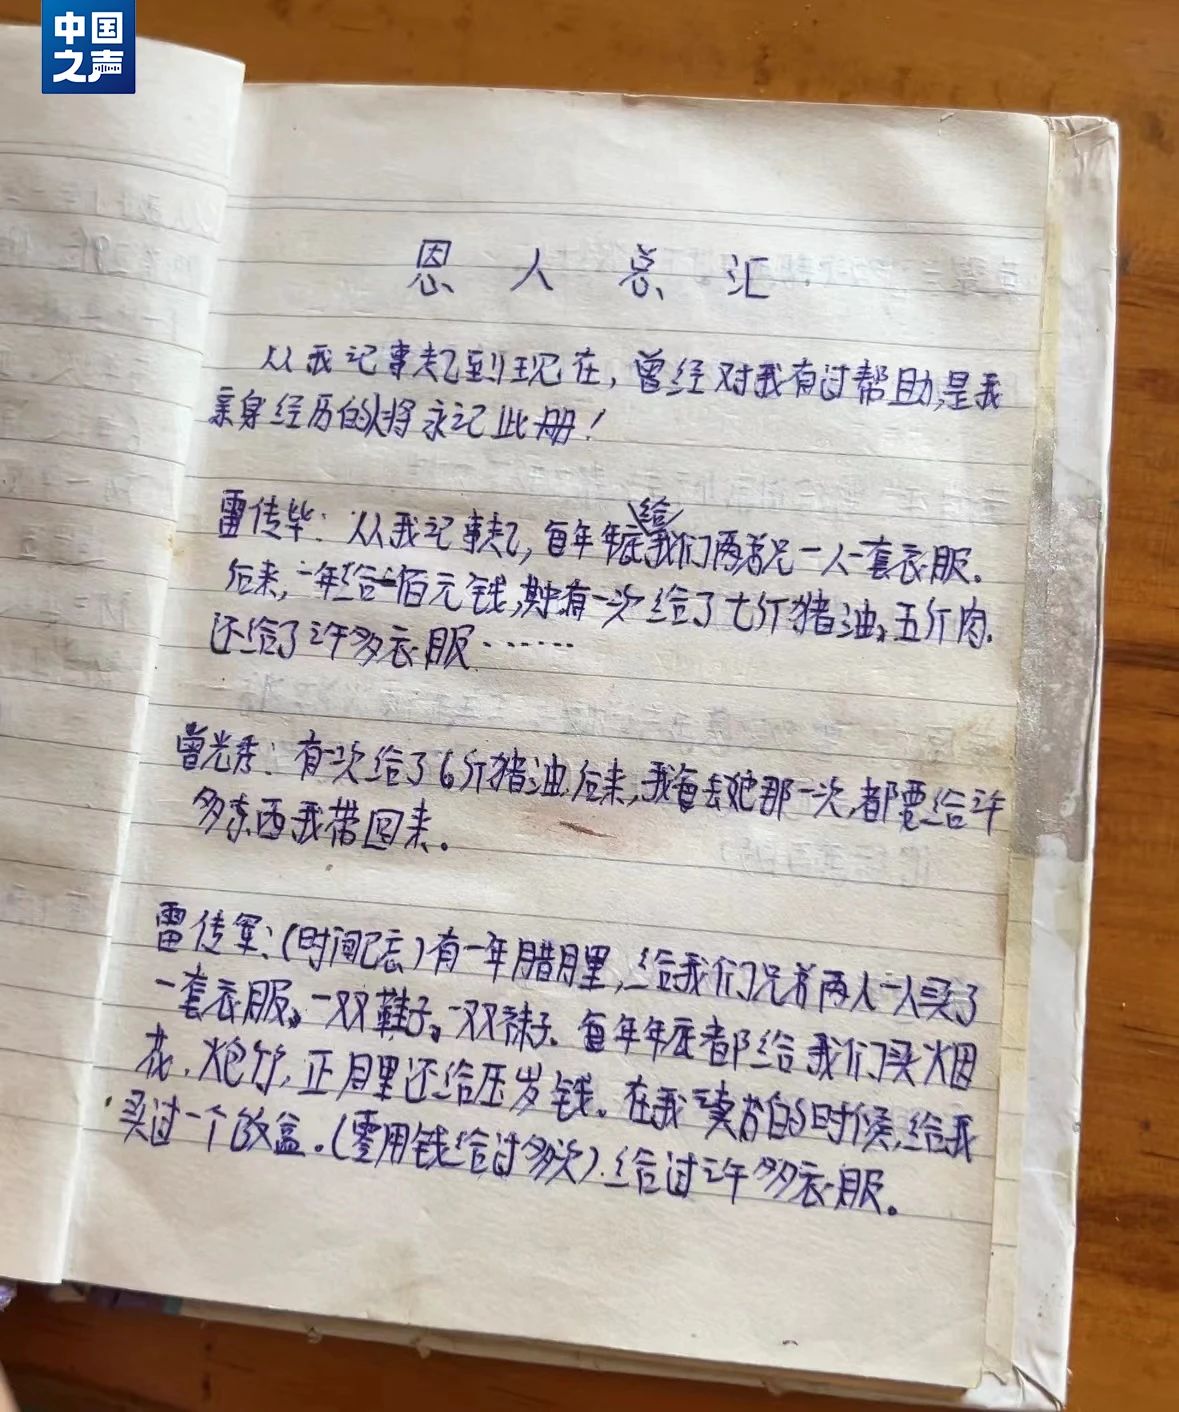 中国
之声
恩人总汇
从我记事起到现在,曾经对我有过帮助,是我
亲身经历的将永记此册!
雷传毕:从我记事起,每年年底给我们两弟兄一人一套衣服。
后来,一年给一佰元钱,其中有一次给了七斤猪油,五斤肉.
还给了许多衣服……
曾光秀:有一次给了6斤猪油.后来,我每去她那一次,都要给许
多东西我带回来。
雷传军:(时间已忘)有一年腊月里,给我们兄弟两人一人买了
一套衣服,一双鞋子,一双袜子.每年年底都给我们买烟
花、炮竹,正月里还给压岁钱。在我读书的时候,给我
买过一个饭盒。(零用钱给过多次).给过许多衣服。